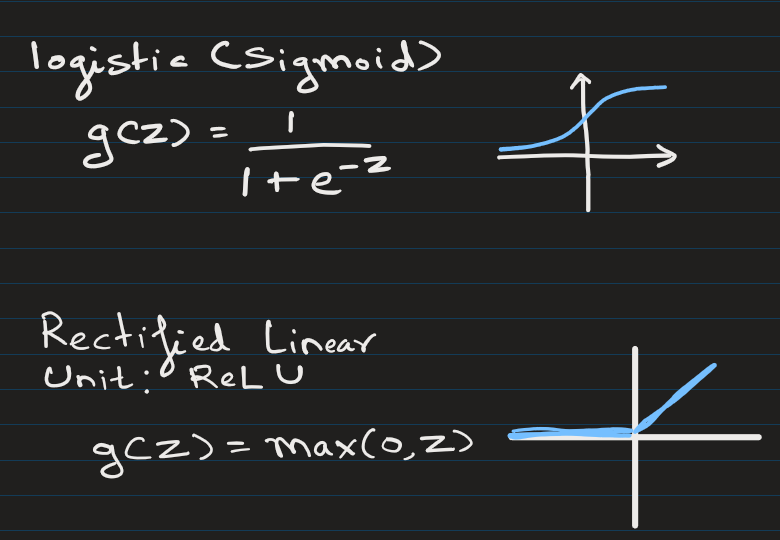 logistic (Sigmoid)
g(z) = 1 / (1 + e^-z)
Rectified Linear
Unit: ReLU
g(z) = max(0, z)